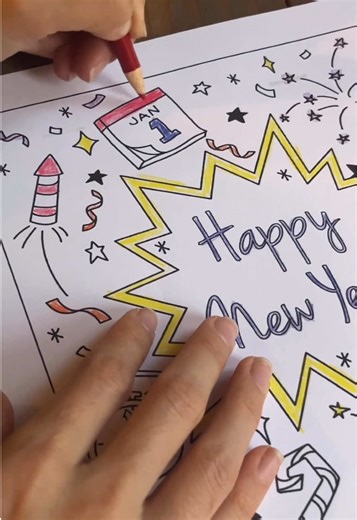 JAN
1
Happy
New